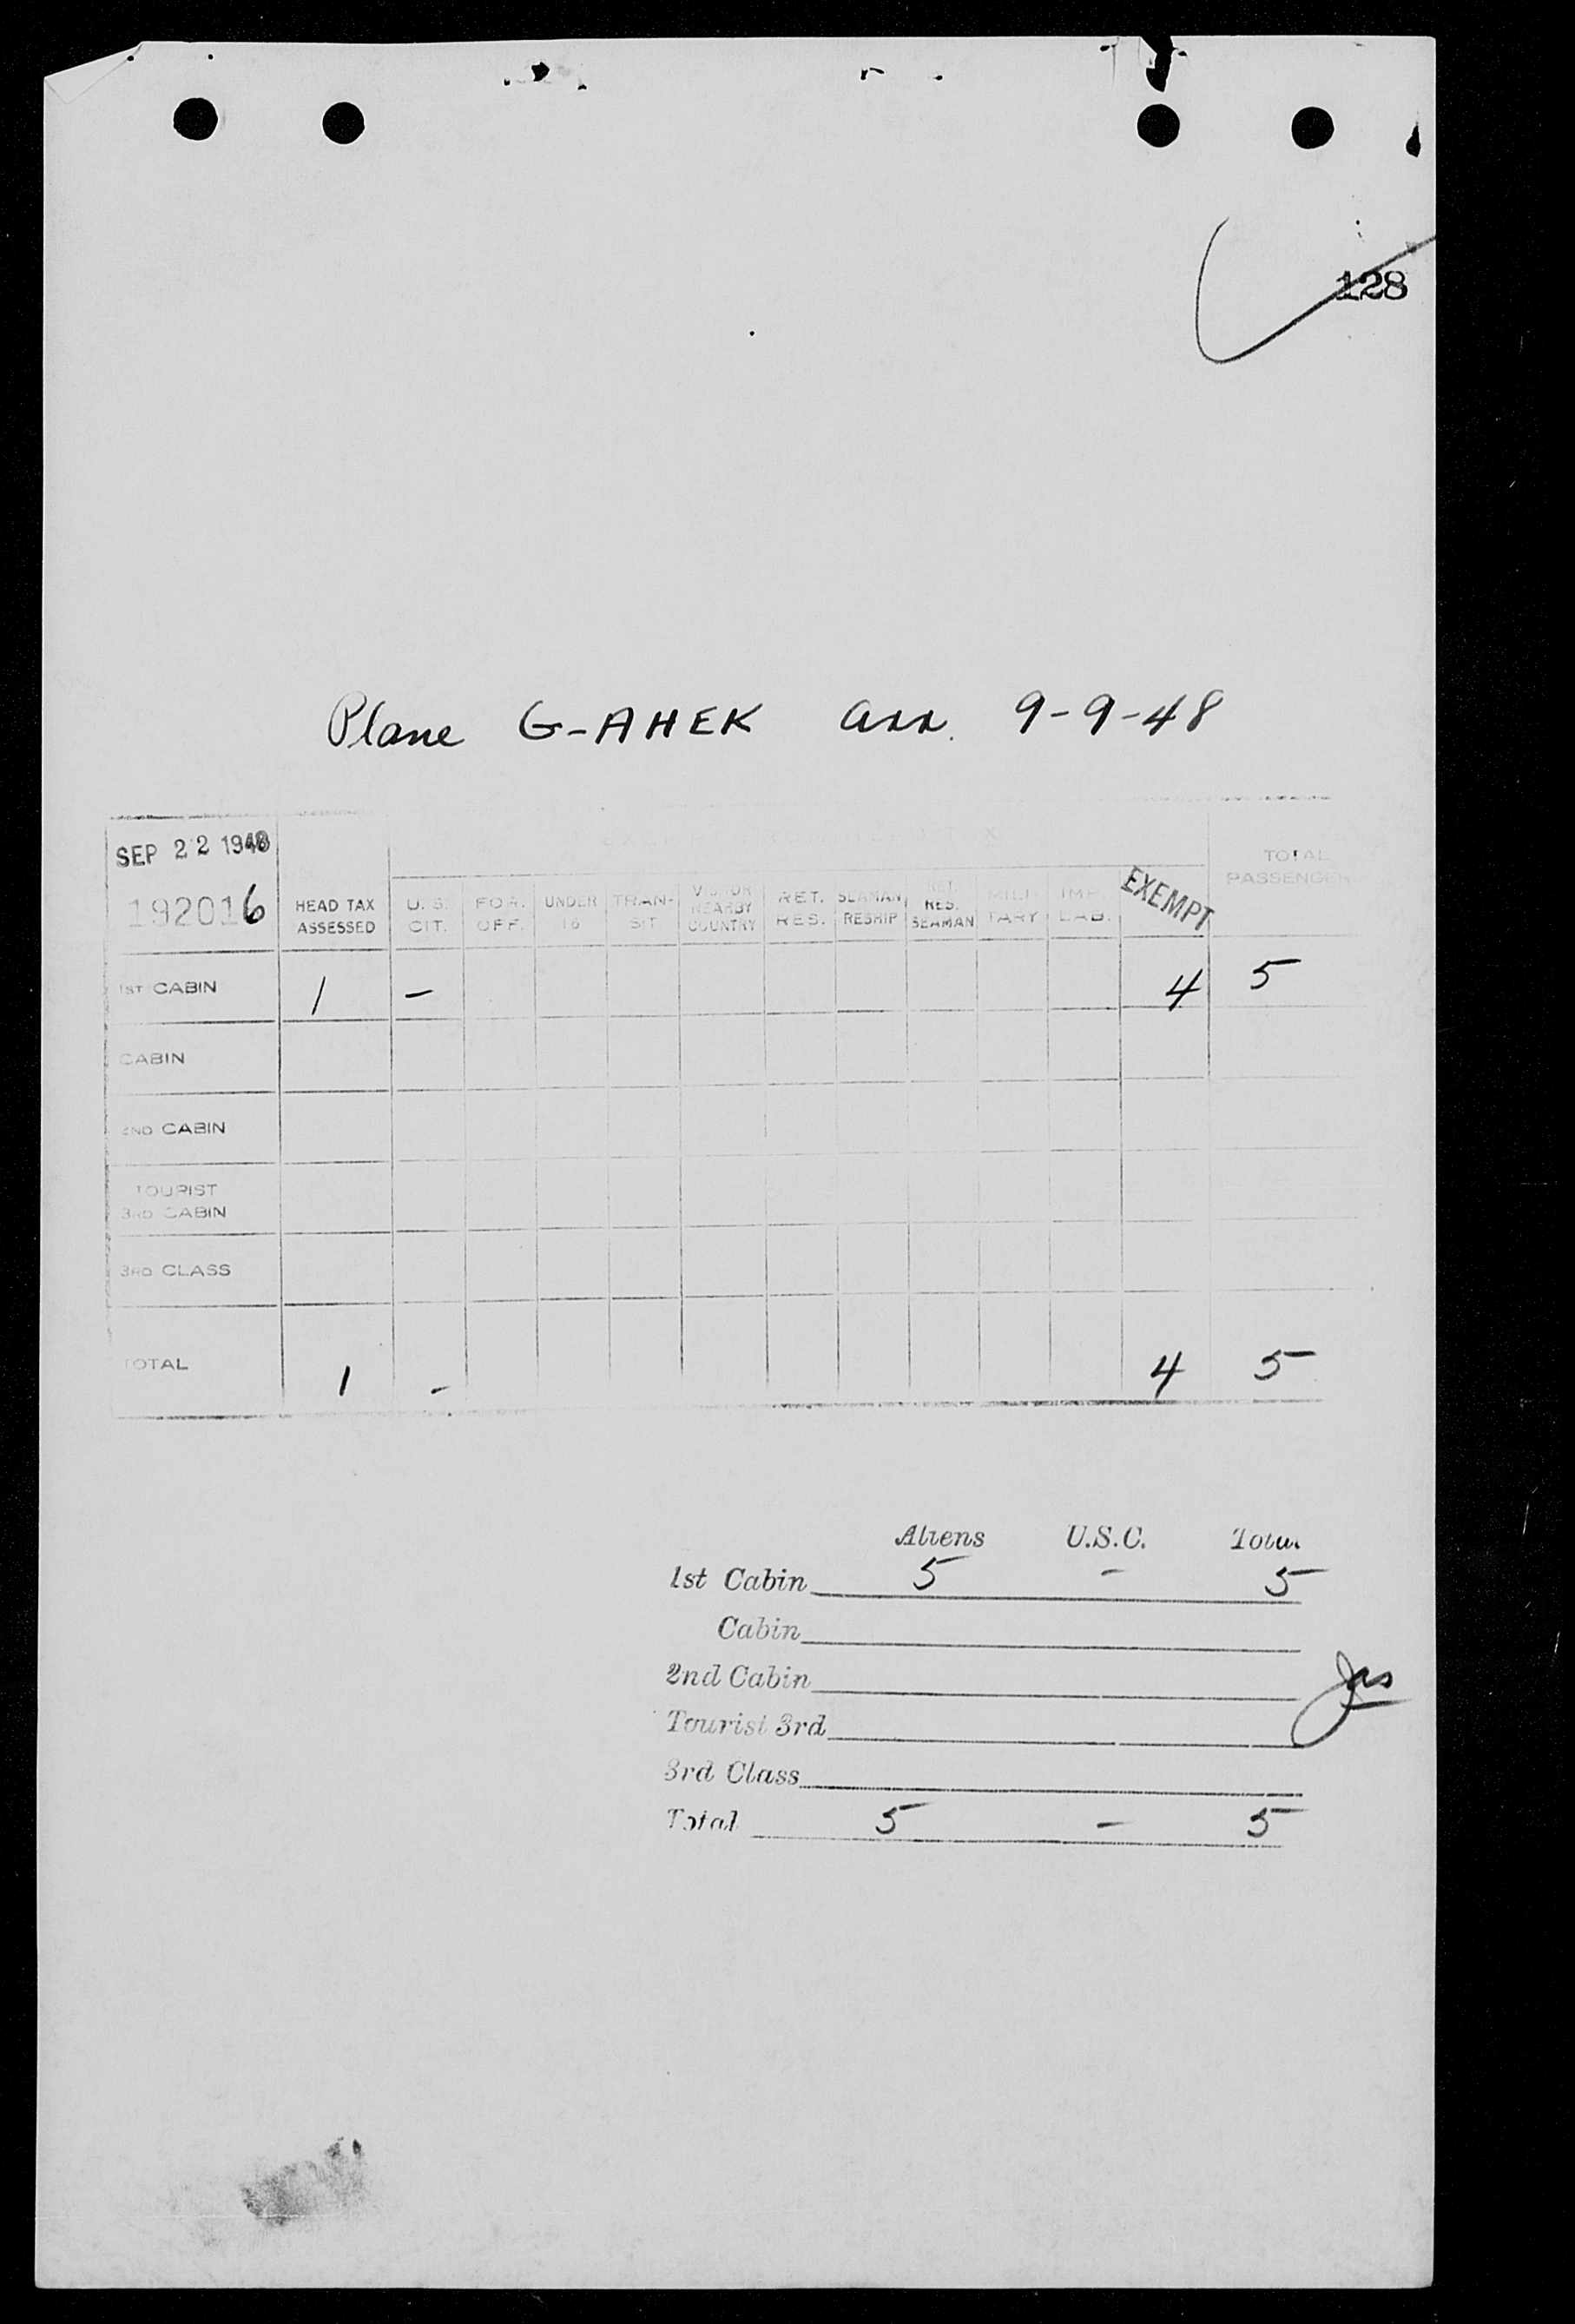 128
Plane G-AHEK arr. 9-9-48
SEP 22 1948
192016
HEAD TAX ASSESSED
U. S. CIT.
FOR. OFF.
UNDER 16
TRAN-SIT
VISITOR NEARBY COUNTRY
RET. RES.
SEAMAN RESHIP
RET. RES. SEAMAN
MILI-TARY
IMP. LAB.
EXEMPT
TOTAL PASSENGER
1ST CABIN 1 - 4 5
CABIN
2ND CABIN
TOURIST
3RD CABIN
3RD CLASS
TOTAL 1 - 4 5
Aliens U.S.C. Total
1st Cabin 5 - 5
Cabin
2nd Cabin
Tourist 3rd
3rd Class
Total 5 - 5